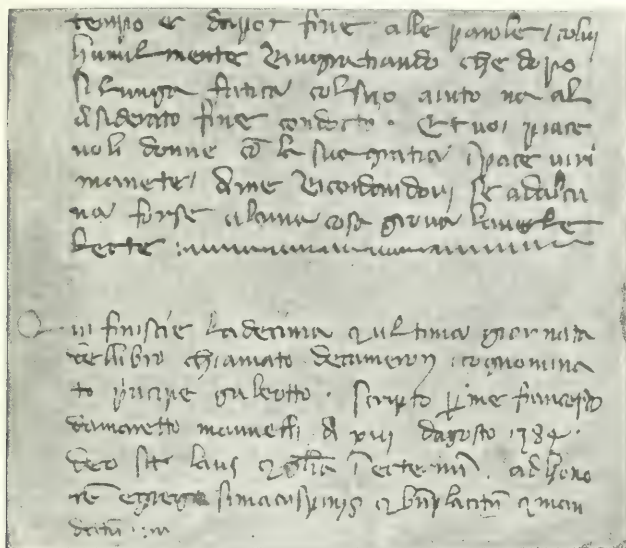 tempo e dapor fine alle parole, colui
humilmente Ringratiando che dopo
si lunga fatica col suo aiuto na al
disiderato fine condocto. Et voi piace
voli donne cō la sua gratia ī pace vi ri
manete, di me Ricordandovi se ad alcu
na forse alcuna cosa giova laverle
lecte
Qui finiscie la decima et ultima giornata
dellibro chiamato decameron, cognomina
to prīcipe galeotto. Scripto p me francescho
damaretto mannelli. A dagosto 1384.
deo sit laus et glīa ī ecternū. ad hono
rē